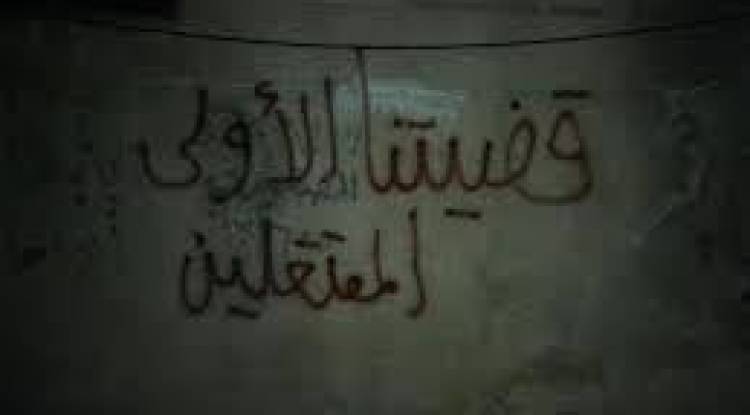 قضيتنا الأولى
المعتقلين